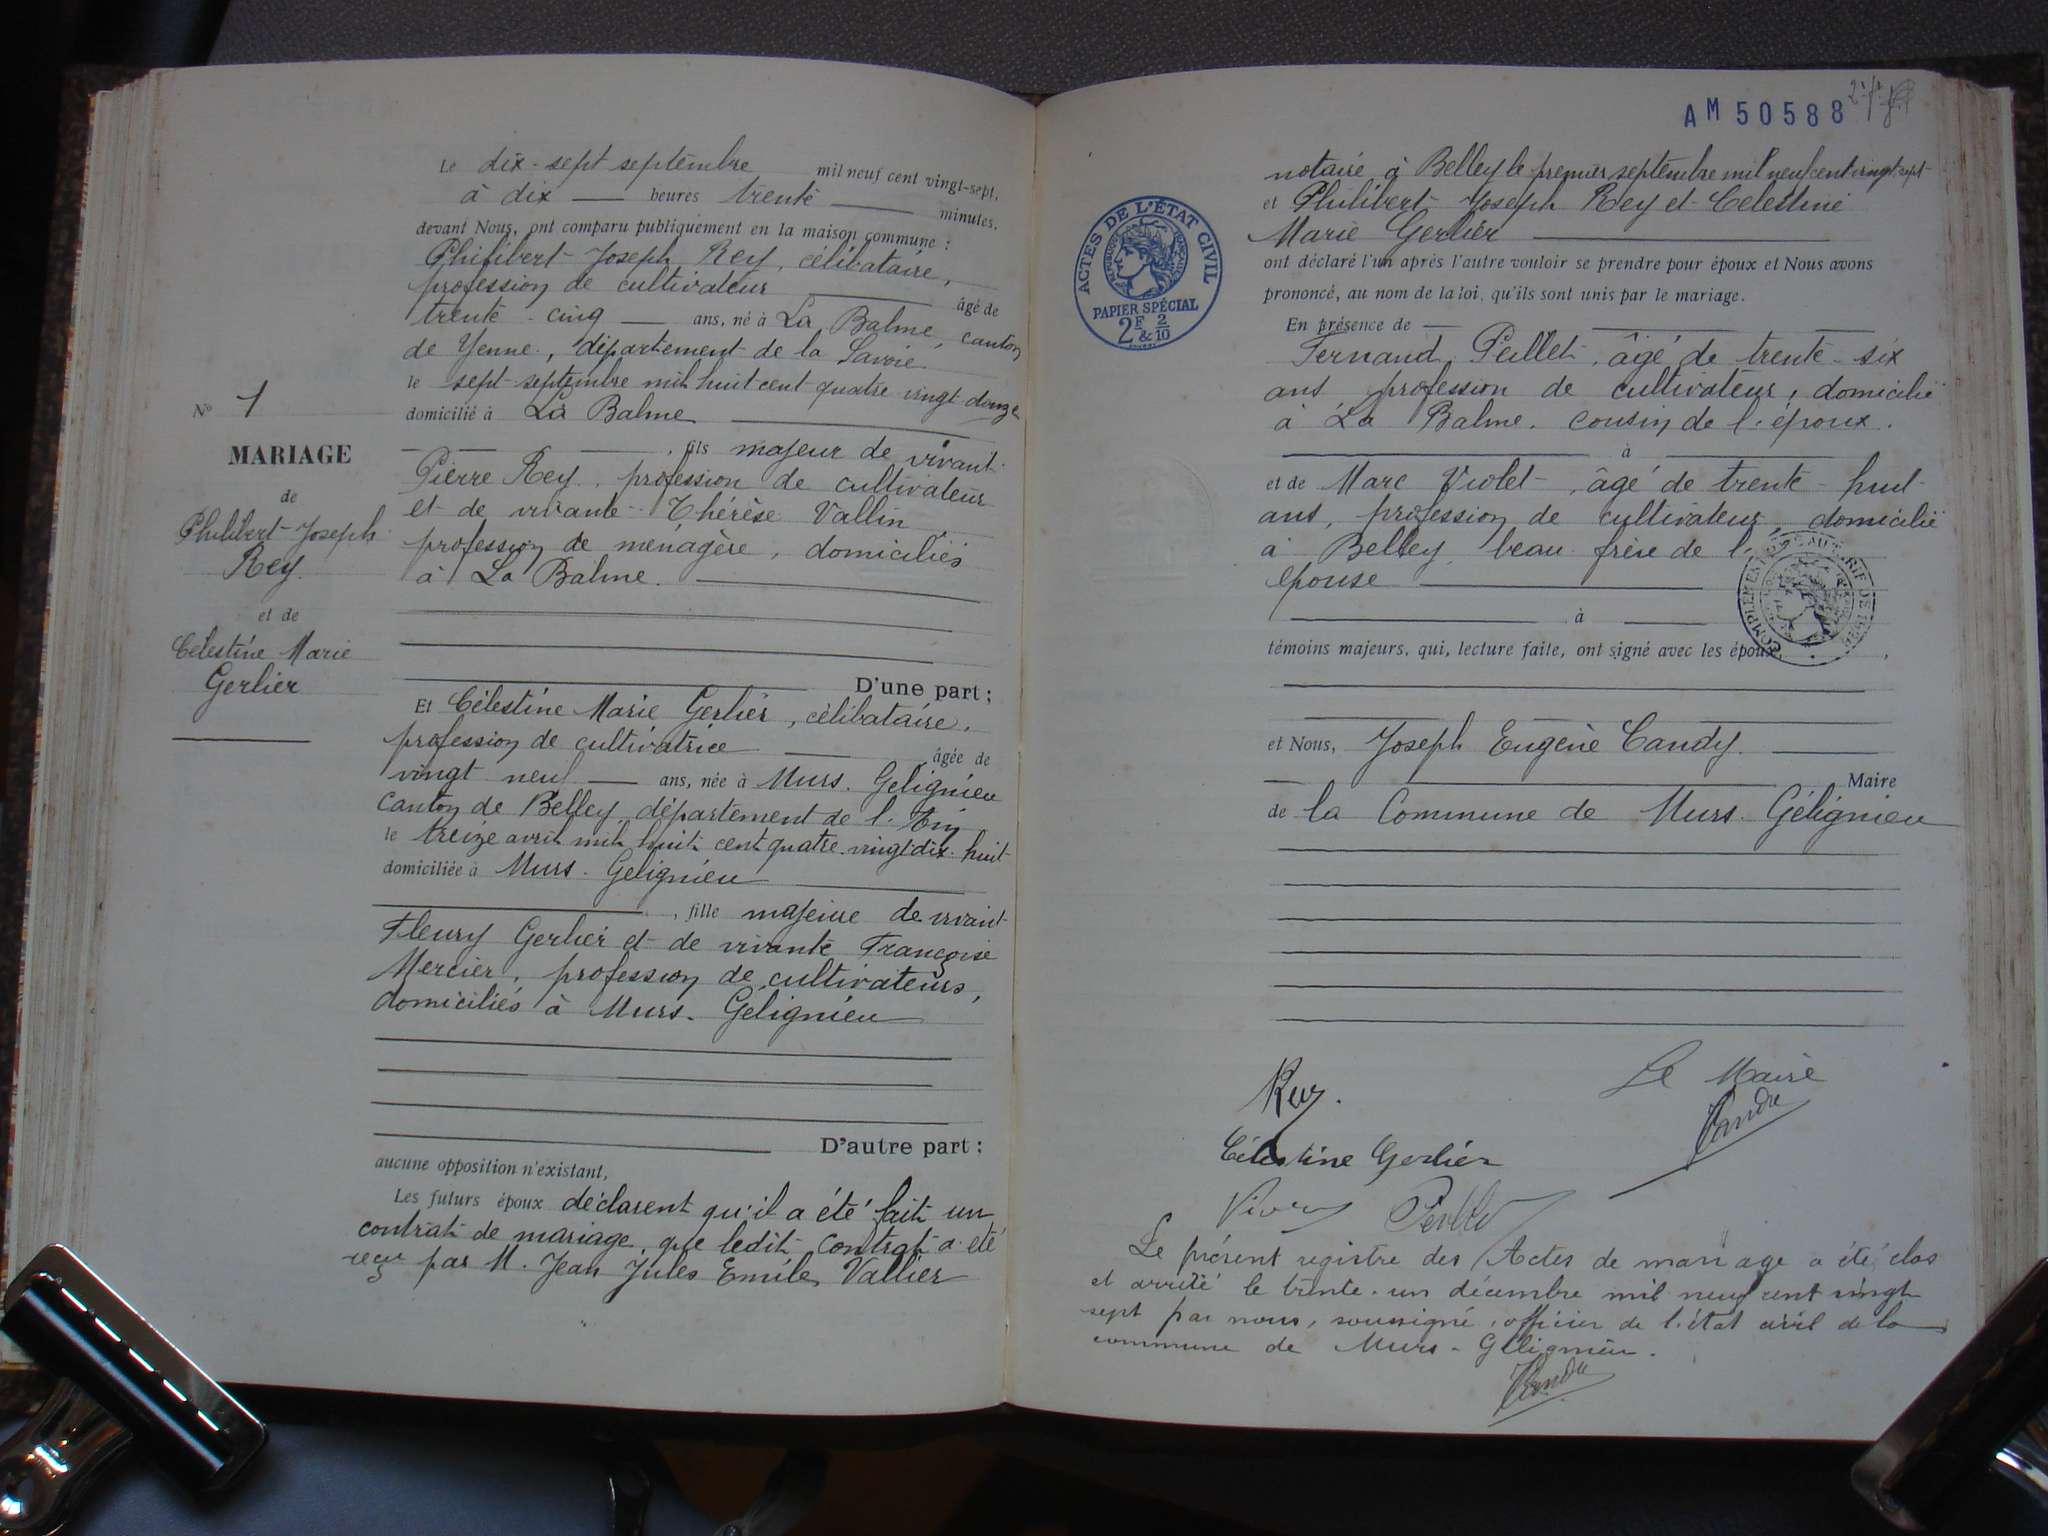 Le dix-sept septembre mil neuf cent vingt-sept,
à dix heures trente minutes,
devant Nous, ont comparu publiquement en la maison commune :
Philibert-Joseph Rey, célibataire,
profession de cultivateur âgé de
trente-cinq ans, né à La Balme, canton
de Yenne, département de la Savoie
le sept septembre mil huit cent quatre vingt douze
domicilié à La Balme
, fils majeur de vivant
Pierre Rey, profession de cultivateur
et de vivante Thérèse Vallin
profession de ménagère, domiciliés
à La Balme.
D'une part ;
Et Célestine Marie Gerlier, célibataire,
profession de cultivatrice âgée de
vingt neuf ans, née à Murs-Gélignieu
canton de Belley, département de l'Ain
le treize avril mil huit cent quatre-vingt-dix-huit
domiciliée à Murs-Gélignieu
, fille majeure de vivant
Fleury Gerlier et de vivante Françoise
Mercier, profession de cultivateurs,
domiciliés à Murs-Gélignieu
D'autre part ;
aucune opposition n'existant,
Les futurs époux déclarent qu'il a été fait un
contrat de mariage, que ledit contrat a été
reçu par M. Jean Jules Emile Vallier
N° 1
MARIAGE
de
Philibert-Joseph
Rey
et de
Célestine Marie
Gerlier
AM 50588
notaire à Belley le premier septembre mil neuf cent vingt sept
et Philibert-Joseph Rey et Célestine
Marie Gerlier
ont déclaré l'un après l'autre vouloir se prendre pour époux et Nous avons
prononcé, au nom de la loi, qu'ils sont unis par le mariage.
En présence de
Fernand Peillet, âgé de trente-six
ans profession de cultivateur, domicilié
à La Balme, cousin de l'époux.
à
et de Marc Violet, âgé de trente-huit
ans, profession de cultivateur, domicilié
à Belley, beau-frère de l'
épouse
à
témoins majeurs, qui, lecture faite, ont signé avec les époux,
et Nous, Joseph Eugène Candy.
Maire
de la Commune de Murs-Gélignieu
ACTES DE L'ÉTAT CIVIL
RÉPUBLIQUE FRANÇAISE
PAPIER SPÉCIAL
2F & 2/10
Rey.
Le Maire
Célestine Gerlier
Le présent registre des Actes de mariage a été clos
et arrêté le trente-un décembre mil neuf cent vingt
sept par nous, soussigné, officier de l'état civil de la
commune de Murs-Gélignieu.